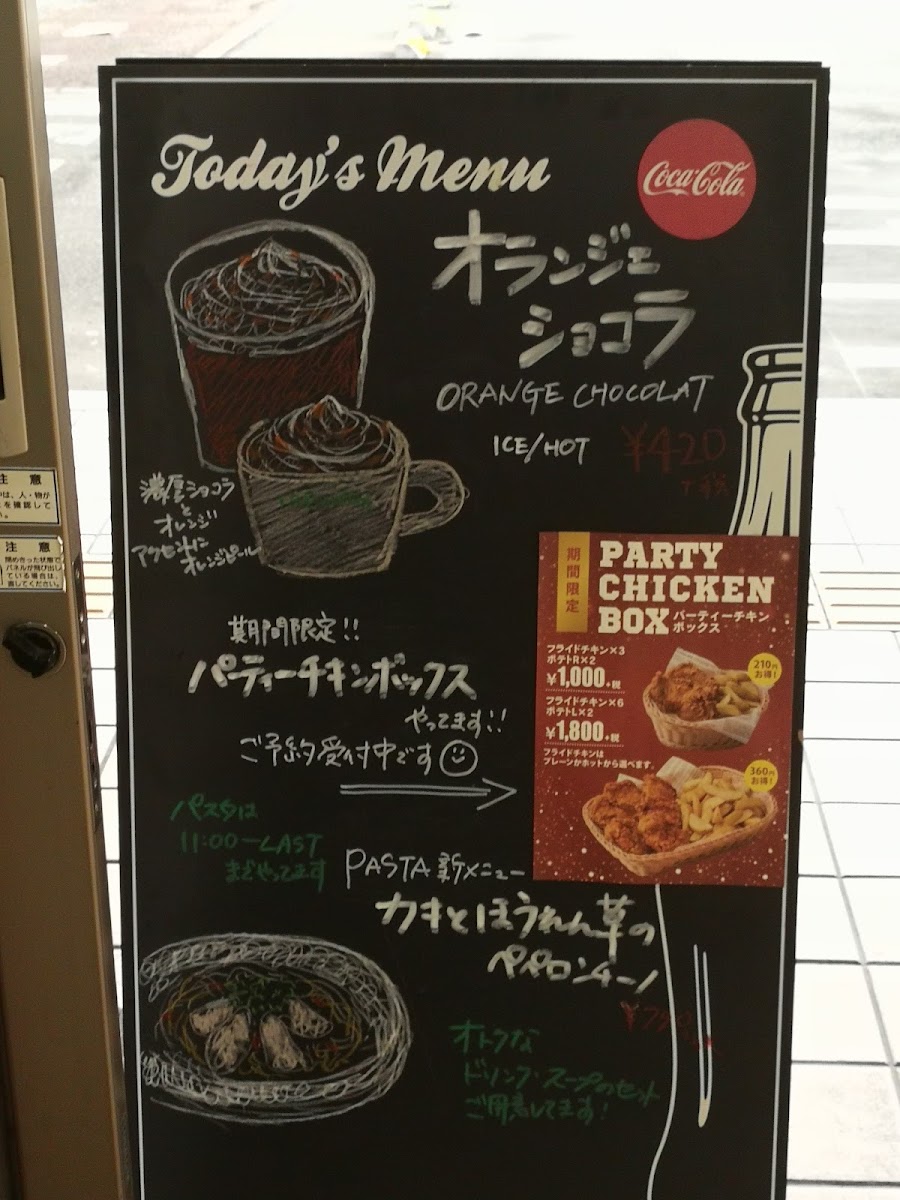 Today's Menu
Coca-Cola
オランジェ
ショコラ
ORANGE CHOCOLAT
ICE/HOT
¥420
+税
濃厚ショコラ
と
オレンジ
アクセントに
オレンジピール
期間限定!!
パーティーチキンボックス
やってます!!
ご予約受付中です
期間限定
PARTY
CHICKEN
BOX
パーティーチキン
ボックス
フライドチキン×3
ポテトR×2
¥1,000+税
210円
お得!
フライドチキン×6
ポテトL×2
¥1,800+税
フライドチキンは
プレーンかホットから選べます。
360円
お得!
パスタは
11:00-LAST
までやってます
PASTA 新メニュー
カキとほうれん草の
ペペロンチーノ
オトクな
ドリンク・スープのセット
ご用意してます!
注 意
は、人・物が
を確認して
注 意
閉め切った状態で
パネルが飛び出し
ている場合は、
直してください。